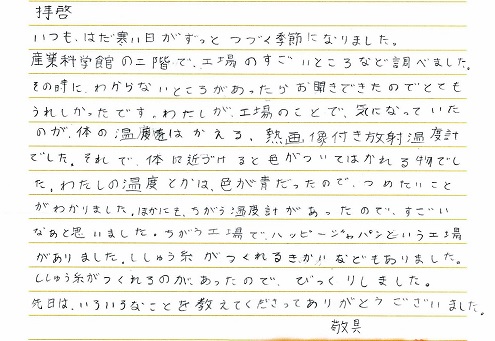 拝啓
いつも、はだ寒い日がずっとつづく季節になりました。
産業科学館の二階で、工場のすごいところなど調べました。
その時に、わからないところがあったらお聞きできたのでとても
うれしかったです。わたしが、工場のことで、気になっていた
のが、体の温度をはかえる、熱画像付き放射温度計
でした。それで、体に近づけると色がついてはかれる物でし
た。わたしの温度とかは、色が青だったので、つめたいこと
がわかりました。ほかにも、ちがう温度計があったので、すごい
なあと思いました。ちがう工場で、ハッピージャパンという工場
がありました。ししゅう糸がつくれるきかいなどもありました。
ししゅう糸がつくれるのが、あったので、びっくりしました。
先日は、いろいろなことを教えてくださってありがとうございました。
敬具